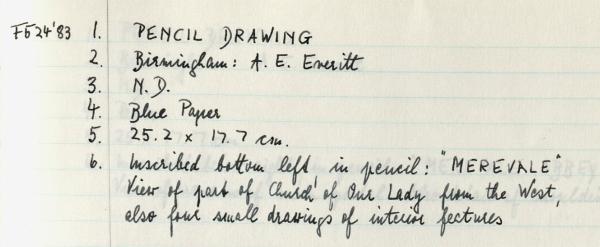 F5 24'83 1. PENCIL DRAWING
2. Birmingham: A. E. Everitt
3. N.D.
4. Blue Paper
5. 25.2 x 17.7 cm.
6. Inscribed bottom left, in pencil: "MEREVALE"
View of part of Church of Our Lady from the West,
also four small drawings of interior features